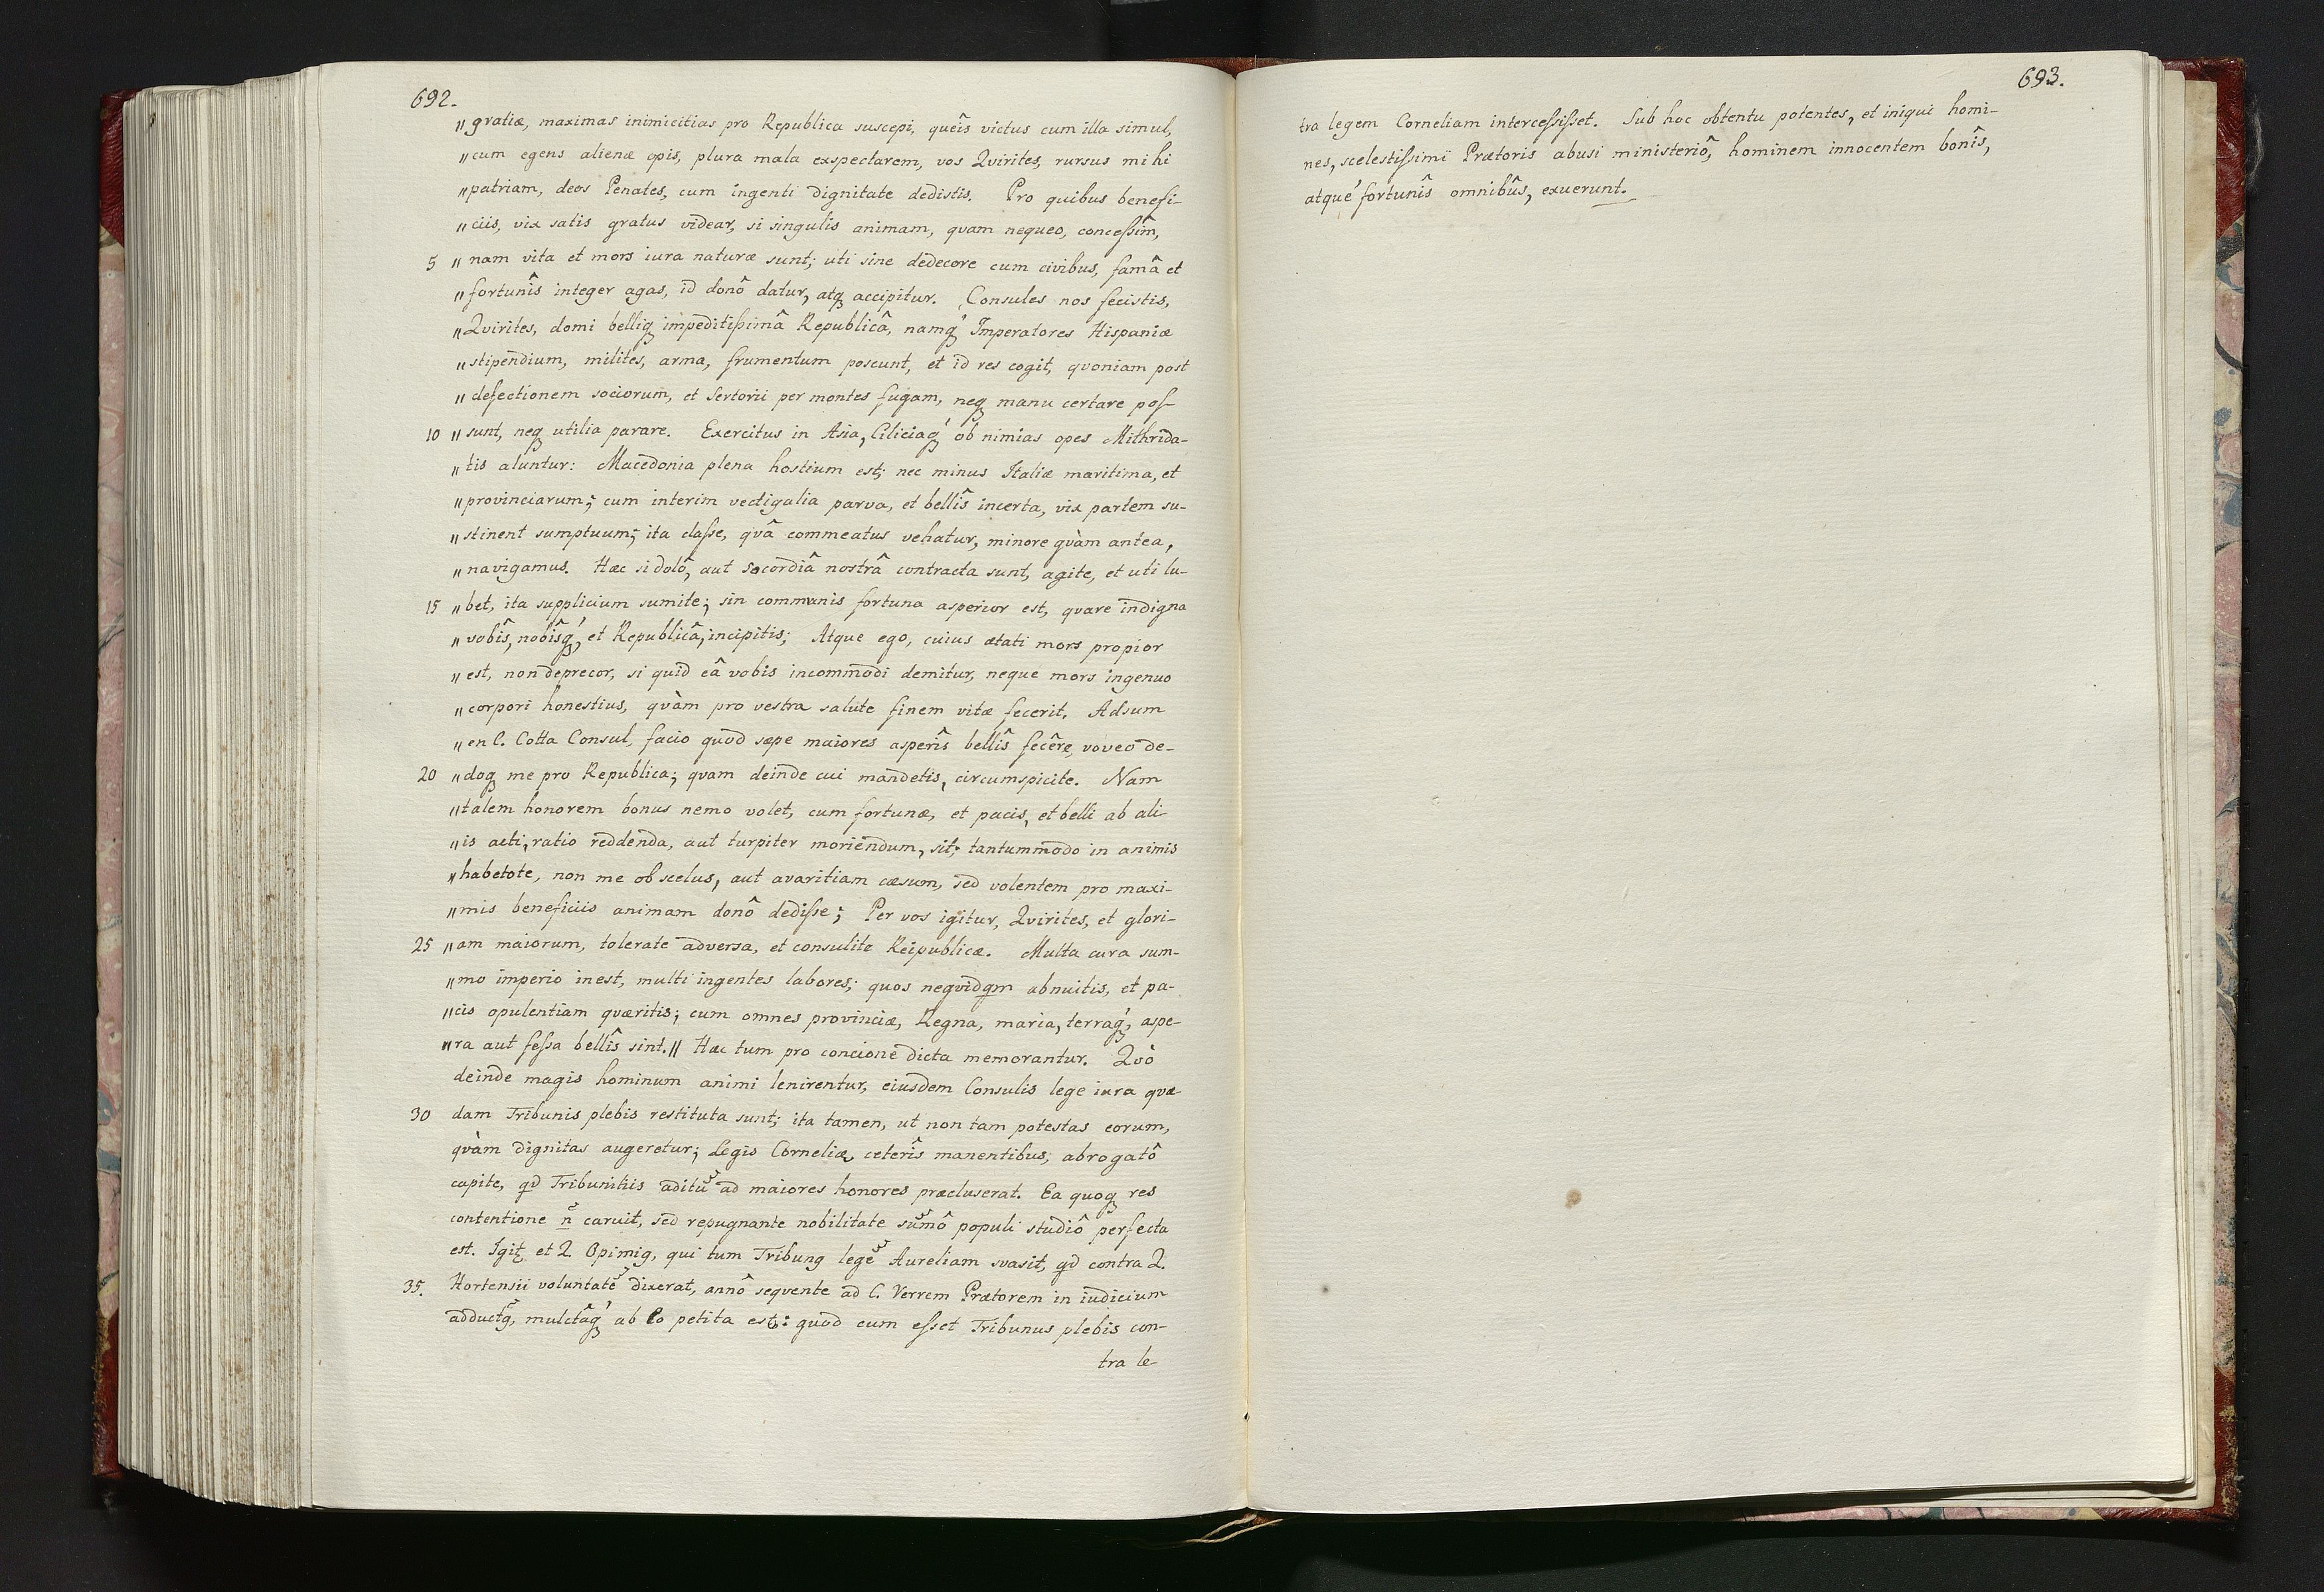 692.
„gratiæ, maximas inimicitias pro Republica suscepi, queîs victus cum illa simul,
„cum egens alienæ opis, plura mala exspectarem, vos Qvirites, rursus mihi
„patriam, deos Penates, cum ingenti dignitate dedistis. Pro quibus benefi-
„ciis, vix satis gratus videar, si singulis animam, qvam nequeo, concessîm,
5 „nam vita et mors iura naturæ sunt; uti sine dedecore cum civibus, famâ et
„fortunîs integer agas, id donô datur, atqꝫ accipitur. Consules nos fecistis,
„Qvirites, domi belliqꝫ impeditissimâ Republicâ, namqꝫ́ Imperatores Hispaniæ
„stipendium, milites, arma, frumentum poscunt, et id res cogit, qvoniam post
„defectionem sociorum, et Sertorii per montes fugam, neqꝫ manu certare pos-
10 „sunt, neqꝫ utilia parare. Exercitus in Asia, Ciliciaqꝫ́ ob nimias opes Mithrida-
„tis aluntur: Macedonia plena hostium est; nec minus Italiæ maritima, et
„provinciarum; cum interim vectigalia parva, et bellîs incerta, vix partem su-
„stinent sumptuum; ita classe, qvâ commeatus vehatur, minore qvàm antea,
„navigamus. Hæc si dolô, aut socordiâ nostrâ contracta sunt, agite, et uti lu-
15 „bet, ita supplicium sumite; sin communis fortuna asperior est, qvare indigna
„vobîs, nobîsqꝫ́, et Republicâ, incipitis; Atque ego, cuius ætati mors propior
„est, non deprecor, si quid eâ vobis incommodi demitur, neque mors ingenuo
„corpori honestius, qvàm pro vestra salute finem vitæ fecerit. Adsum
„en C. Cotta Consul, facio quod sæpe maiores asperîs bellîs fecêre, voveo de-
20 „doqꝫ me pro Republica; qvam deinde cui mandetis, circumspicite. Nam
„talem honorem bonus nemo volet, cum fortunæ, et pacis, et belli ab ali
„is acti, ratio reddenda, aut turpiter moriendum, sit; tantummodo in animis
„habetote, non me ob scelus, aut avaritiam cæsum, sed volentem pro maxi-
„mis beneficiis animam donô dedisse; Per vos igitur, Qvirites, et glori-
25 „am maiorum, tolerate adversa, et consulite Reipublicæ. Multa cura sum-
„mo imperio inest, multi ingentes labores; quos neqvidqm abnuitis, et pa-
„cis opulentiam qværitis; cum omnes provinciæ, Regna, maria, terraqꝫ́, aspe-
„ra aut fessa bellîs sint.„ Hæc tum pro concione dicta memorantur. Qvô
deinde magis hominum animi lenirentur, eiusdem Consulis lege iura qvæ-
30 dam Tribunis plebis restituta sunt; ita tamen, ut non tam potestas eorum,
qvàm dignitas augeretur; Legis Corneliæ ceterîs manentibus, abrogatô
capite, qd Tribunitiis aditũ ad maiores honores præcluserat. Ea quoqꝫ res
contentione ñ caruit, sed repugnante nobilitate sum̃ô populi studiô perfecta
est. Igit᷑ et Q. Opimiꝰ, qui tum Tribunꝰ legẽ Aureliam svasit, qd contra Q.
35. Hortensii voluntatẽ dixerat, annô seqvente ad C. Verrem Prætorem in iudicium
adductꝰ, mulctaqꝫ́ ab eo petita est: quod cum esset Tribunus plebis con-
tra le-
693.
tra legem Corneliam intercessisset. Sub hoc obtentu potentes, et iniqui homi-
nes, scelestissimi Prætoris abusi ministeriô, hominem innocentem bonîs,
atqué fortunîs omnibûs, exuerunt.